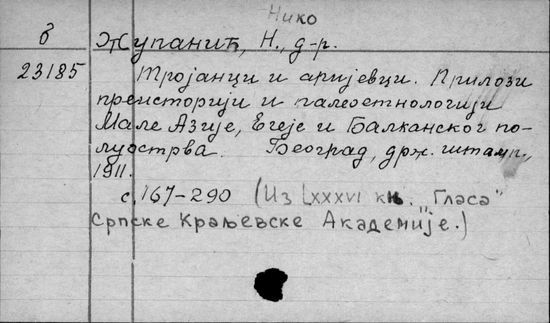 Нико
б Жупанић, Н., д-р.
23185 Тројанци и аријевци. Прилози
преисторији и палеоетнологији
Мале Азије, Егеје и Балканског по-
луострва. Београд, држ. штамп.,
1911.
с. 167-290 (Из LXXXVI књ. „Гласа"
Српске Краљевске Академије.)